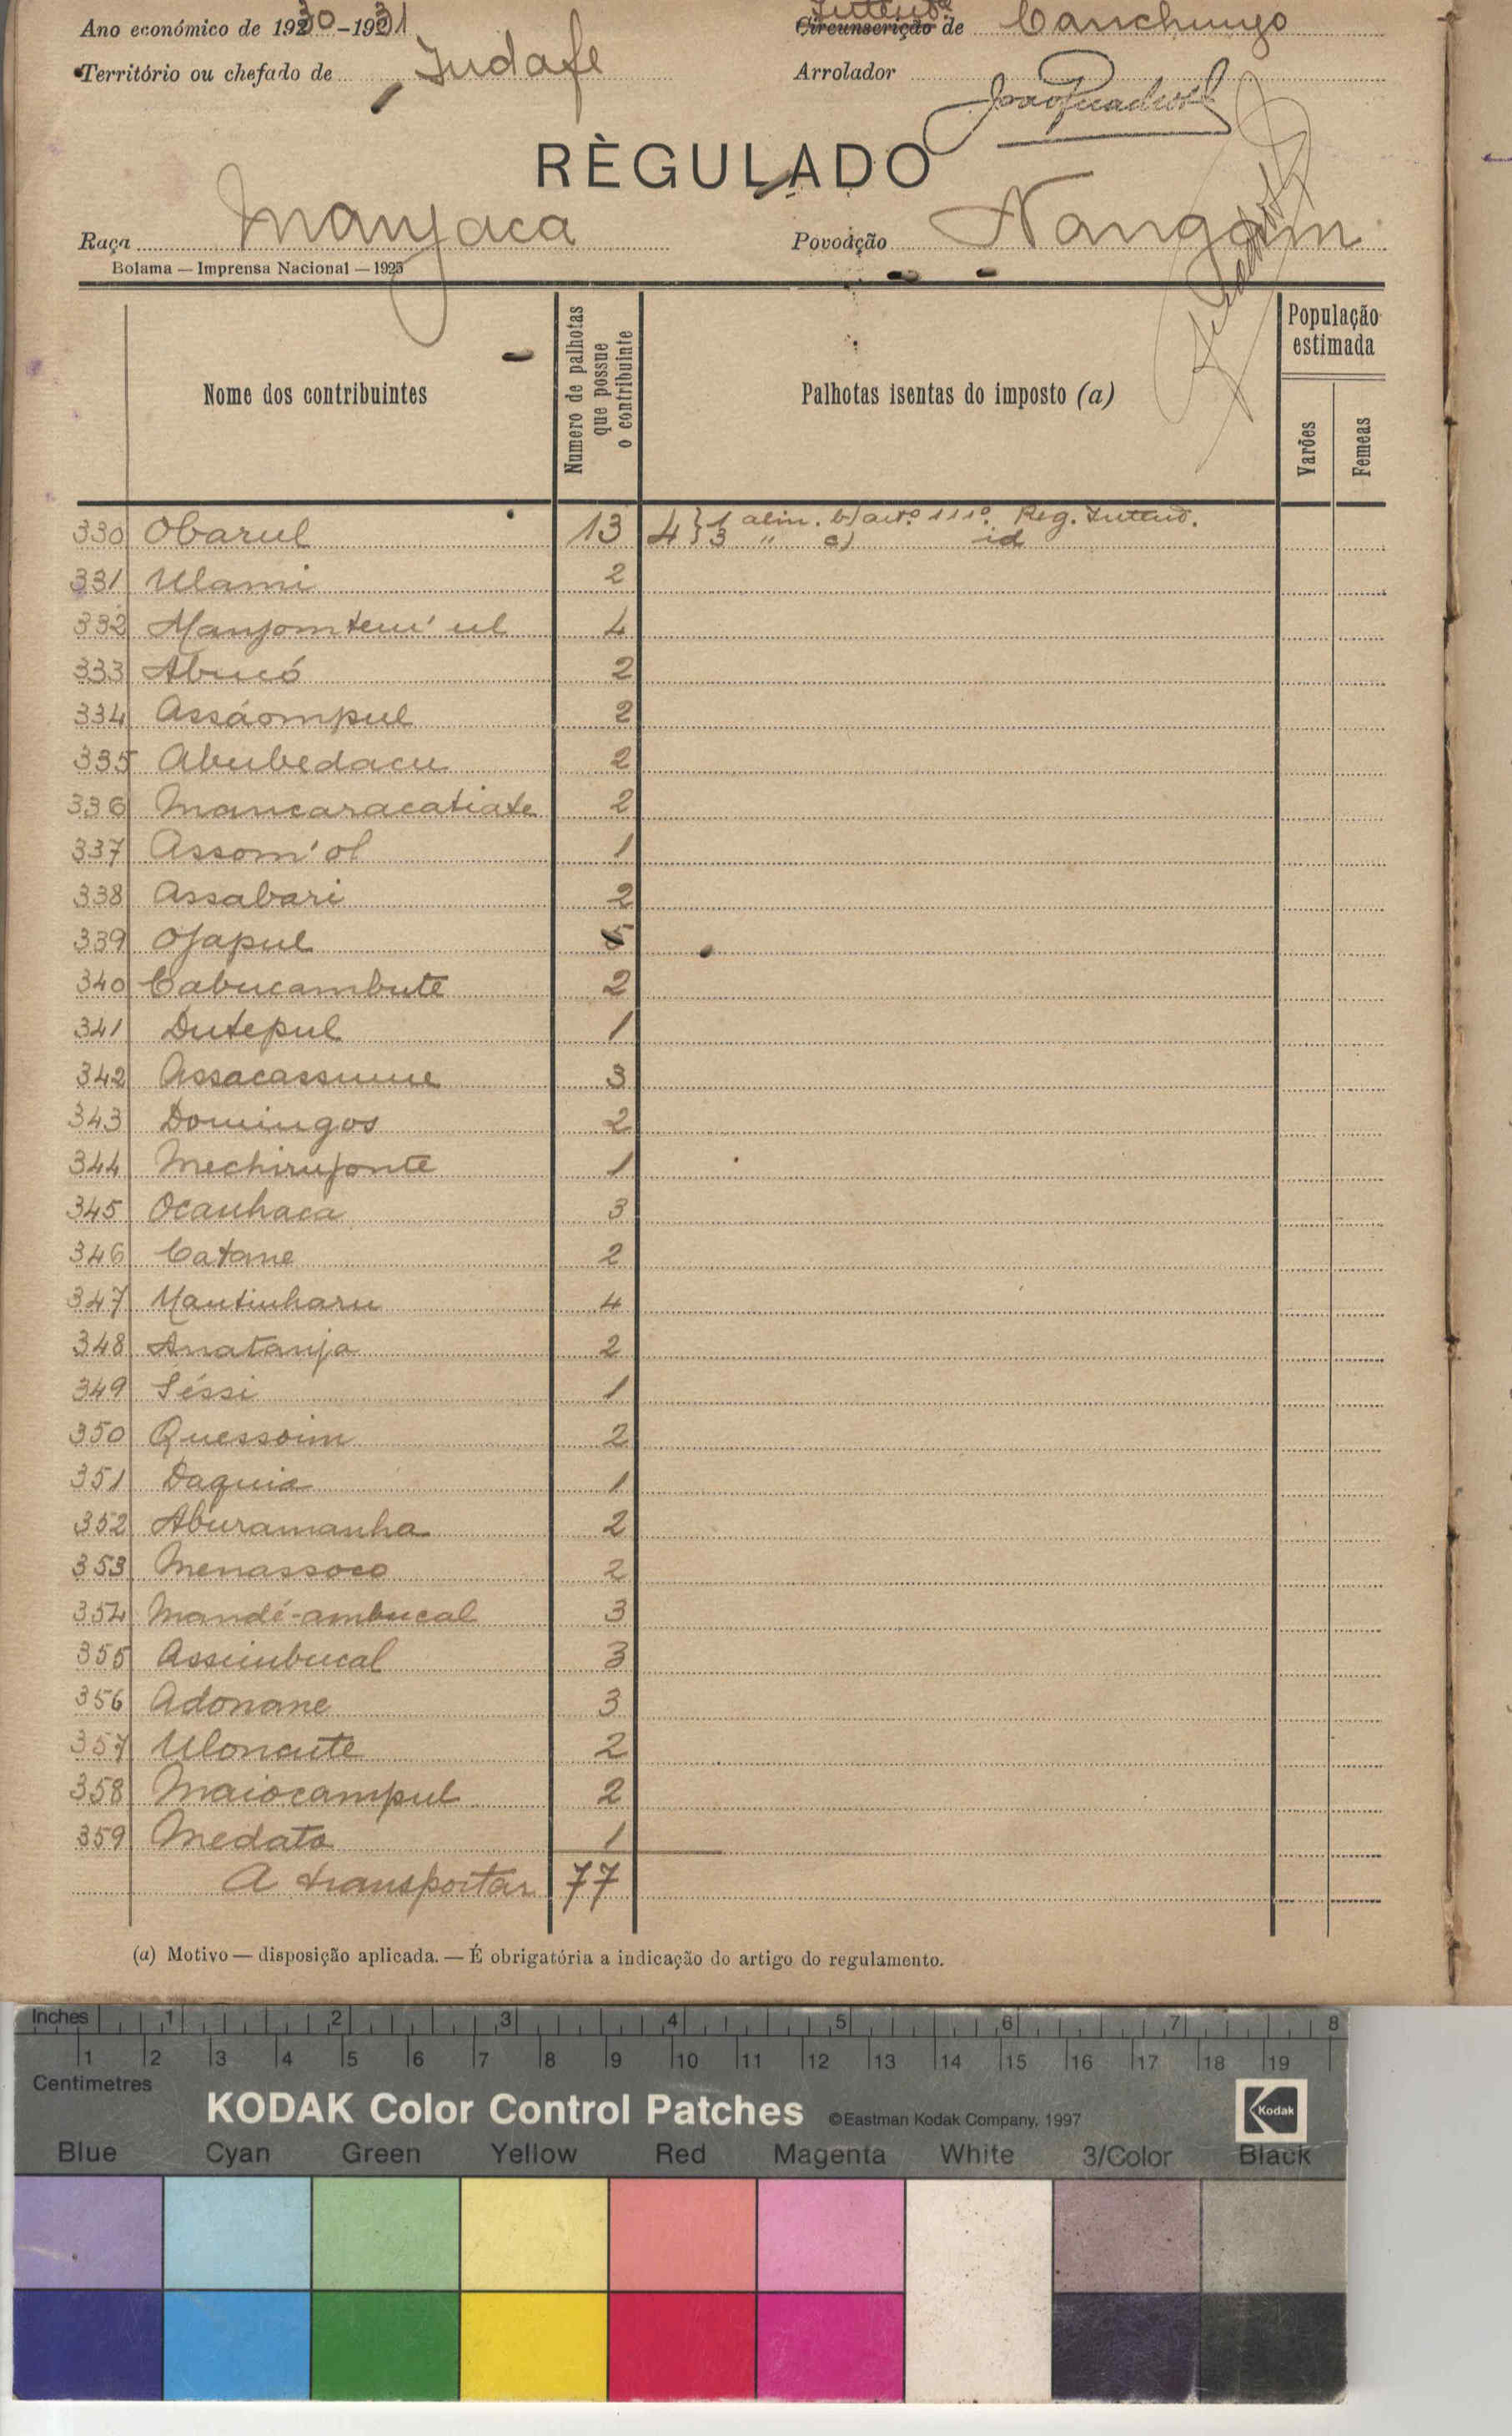 Ano económico de 1930-1931 Intend.ª Circunscrição de Canchungo
Território ou chefado de Indafe Arrolador
RÈGULADO
Raça Manjaca Povoação Nangom
Bolama — Imprensa Nacional — 1925
Nome dos contribuintes
Numero de palhotas que possue o contribuinte
Palhotas isentas do imposto (a)
População estimada
Varões
Femeas
330 Obarul 13 4 } 1 alin. b) art.º 111º. Reg. Intend.
3 " c) id
331 Ulami 2
332 Manjomtem' ul 4
333 Abucó 2
334 Assáompul 2
335 Abubedacu 2
336 Mancaracatiate 2
337 Assom'ol 1
338 Assabari 2
339 Ojapul 5
340 Cabucambute 2
341 Dutepul 1
342 Assacassume 3
343 Domingos 2
344 Mechirujonte 1
345 Ocanhaca 3
346 Catame 2
347 Mantinharu 4
348 Anatanja 2
349 Séssi 1
350 Quessoim 2
351 Daquia 1
352 Aburamanha 2
353 Menassoco 2
354 Mandé-ambucal 3
355 Assimbucal 3
356 Adonane 3
357 Uloncute 2
358 Maiocampul 2
359 Medato 1
A transportar 77
(a) Motivo — disposição aplicada. — É obrigatória a indicação do artigo do regulamento.
Inches 1 2 3 4 5 6 7 8
1 2 3 4 5 6 7 8 9 10 11 12 13 14 15 16 17 18 19
Centimetres
KODAK Color Control Patches ©Eastman Kodak Company, 1997 Kodak
Blue Cyan Green Yellow Red Magenta White 3/Color Black